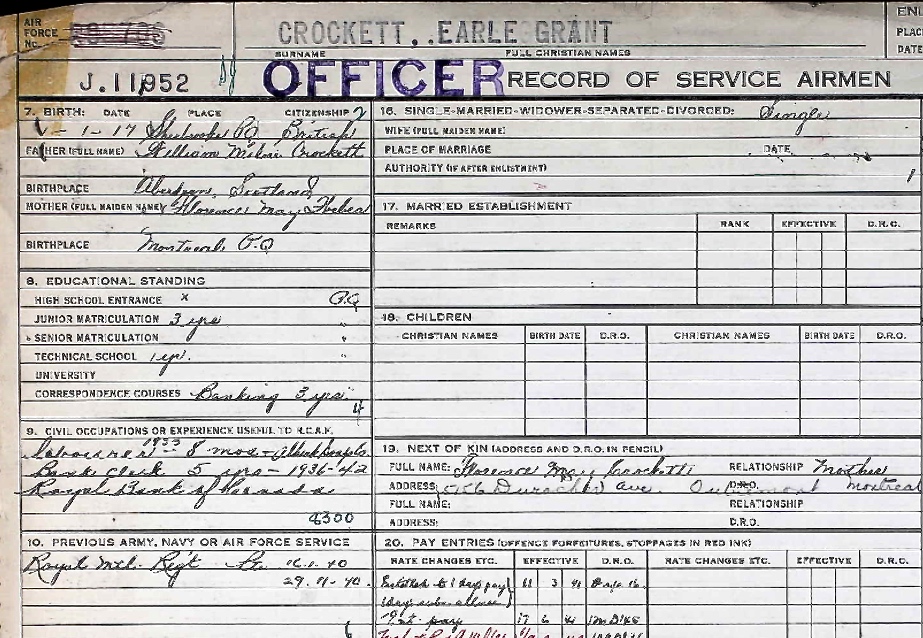 AIR FORCE No.
CROCKETT, . EARLE GRANT
SURNAME FULL CHRISTIAN NAMES
J.11952 OFFICER RECORD OF SERVICE AIRMEN
7. BIRTH: DATE PLACE CITIZENSHIP
1-17 Sherbrooke PQ British
FATHER (FULL NAME) William Crockett
BIRTHPLACE Aberdeen, Scotland
MOTHER (FULL MAIDEN NAME) Florence May
BIRTHPLACE Montreal, P.Q
8. EDUCATIONAL STANDING
HIGH SCHOOL ENTRANCE x P.Q
JUNIOR MATRICULATION 3 yrs "
SENIOR MATRICULATION "
TECHNICAL SCHOOL 1 yr. "
UNIVERSITY
CORRESPONDENCE COURSES Banking 3 yrs.
4
9. CIVIL OCCUPATIONS OR EXPERIENCE USEFUL TO R.C.A.F.
Labourer 1933 8 mos -
Bank Clerk 5 yrs - 1936-42
Royal Bank of Canada
8300
10. PREVIOUS ARMY, NAVY OR AIR FORCE SERVICE
Royal Mtl. Regt
29.11.40.
16. SINGLE-MARRIED-WIDOWER-SEPARATED-DIVORCED: Single
WIFE (FULL MAIDEN NAME)
PLACE OF MARRIAGE DATE
AUTHORITY (IF AFTER ENLISTMENT)
17. MARRIED ESTABLISHMENT
REMARKS RANK EFFECTIVE D.R.O.
18. CHILDREN
CHRISTIAN NAMES BIRTH DATE D.R.O. CHRISTIAN NAMES BIRTH DATE D.R.O.
19. NEXT OF KIN (ADDRESS AND D.R.O. IN PENCIL)
FULL NAME: Florence May Crockett RELATIONSHIP Mother
ADDRESS: Durocher Ave. Outremont Montreal D.R.O.
FULL NAME: RELATIONSHIP
ADDRESS: D.R.O.
20. PAY ENTRIES (OFFENCE FORFEITURES, STOPPAGES IN RED INK)
RATE CHANGES ETC. EFFECTIVE D.R.O. RATE CHANGES ETC. EFFECTIVE D.R.O.
pay